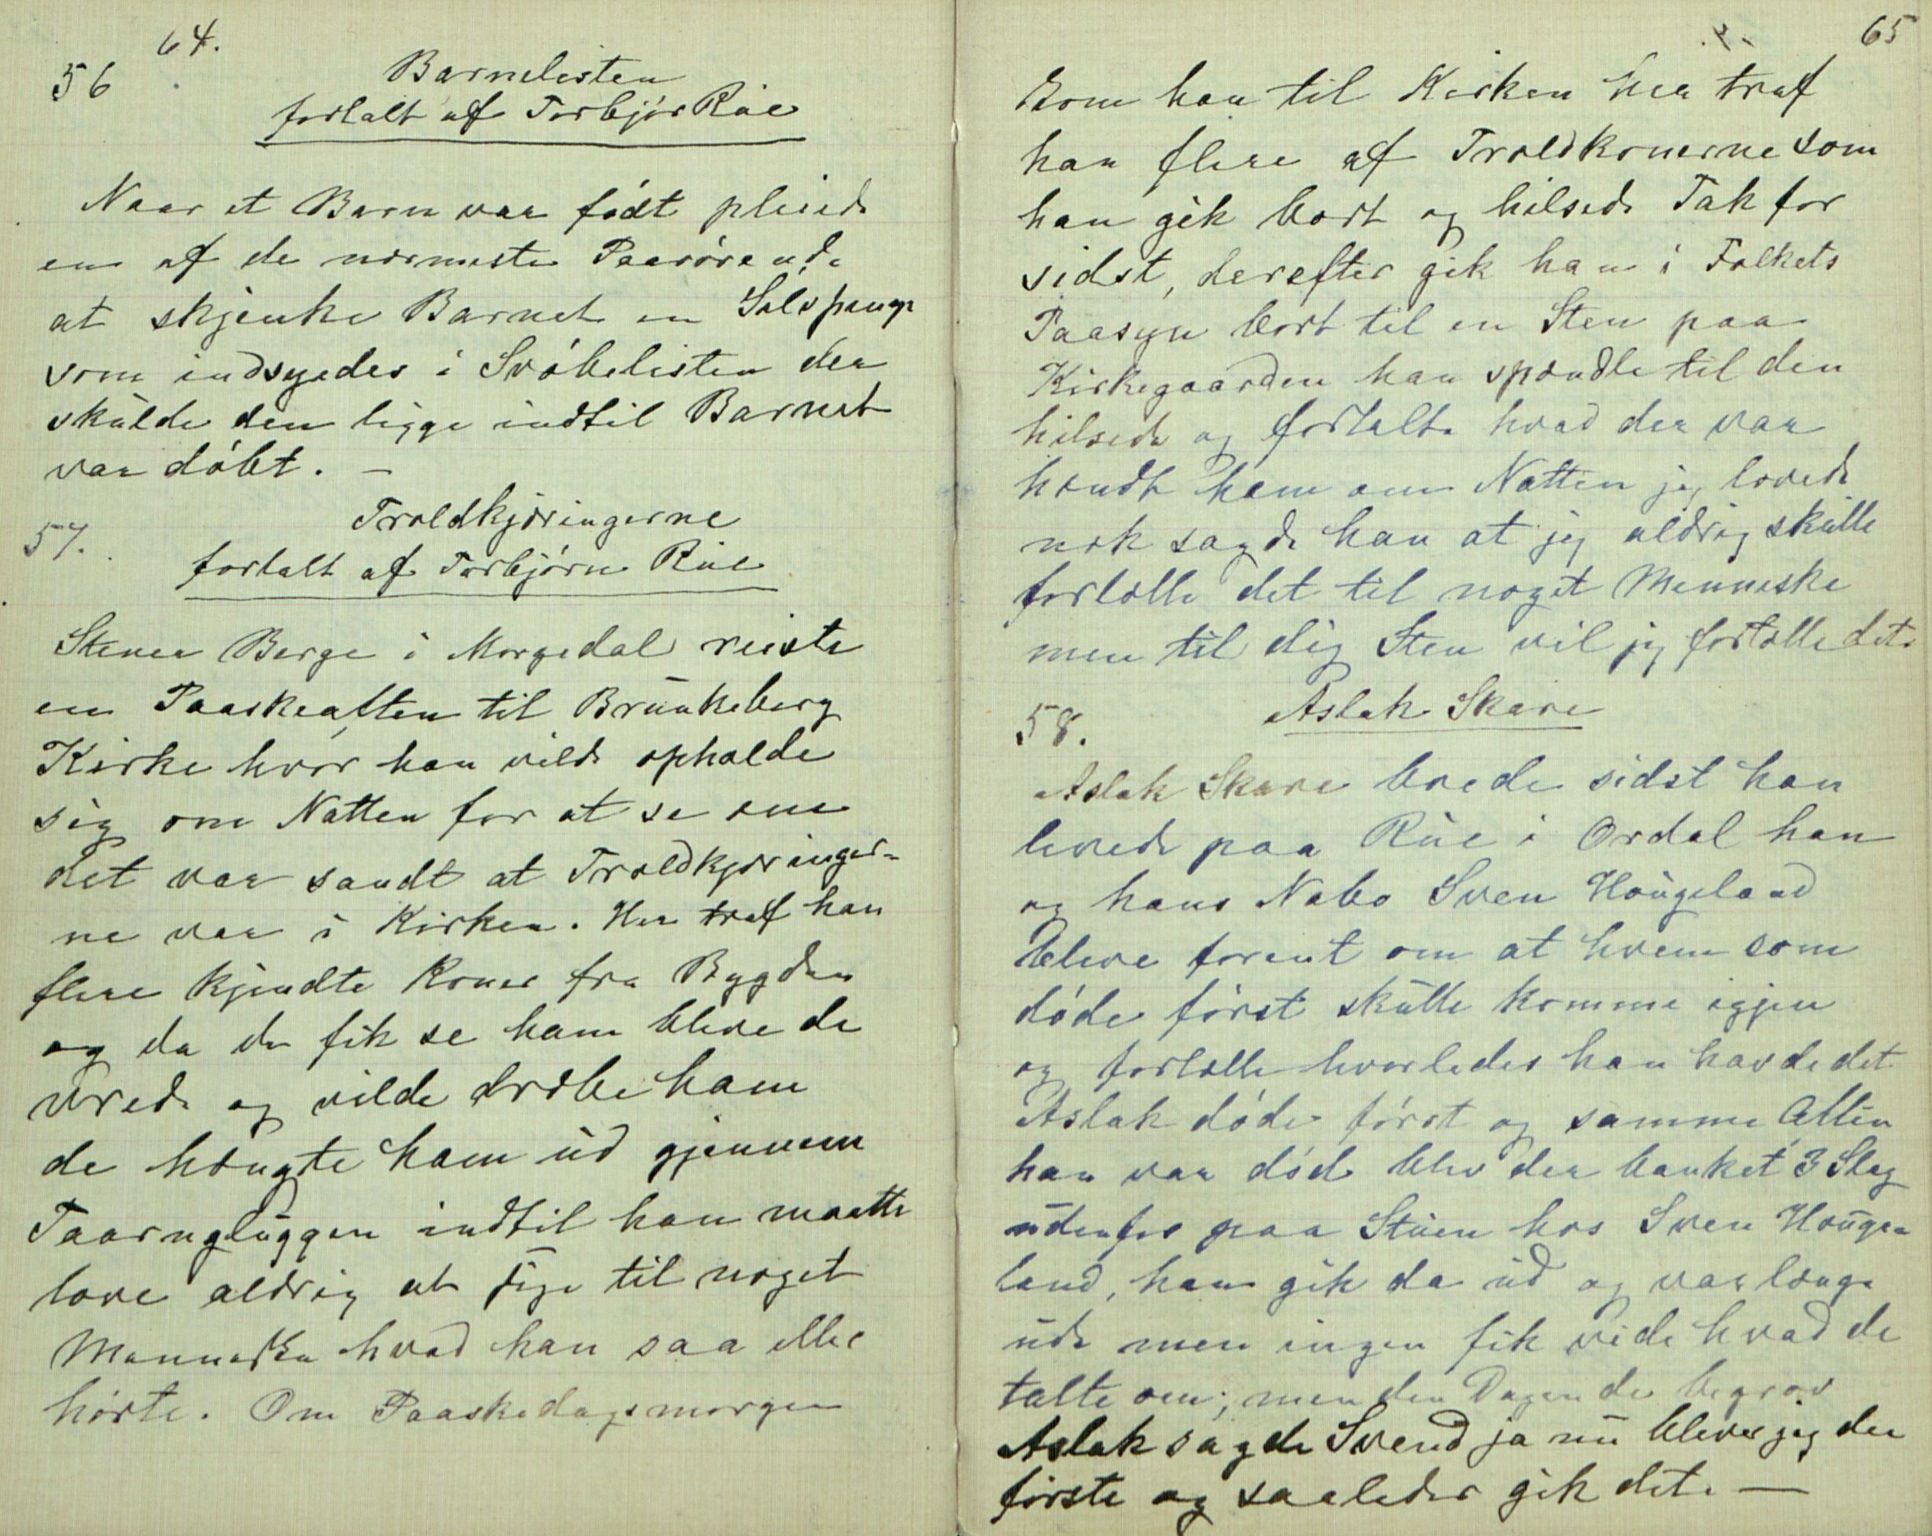 64.
56
Barnelisten
fortalt af Torbjør Rue
Naar et Barn var født pleiede
en af de nærmeste Paarørende
at skjenke Barnet en Sølvpenge
som indsyedes i Svøbelisten der
skulde den ligge indtil Barnet
var døbt. —
57.
Troldkjæringerne
fortalt af Torbjørn Rue
Stener Berge i Morgedal reiste
en Paaskeaften til Brunkeberg
Kirke hvor han vilde opholde
sig om Natten for at se om
det var sandt at Troldkjæringer-
ne var i Kirken. Her traf han
flere kjendte Koner fra Bygden
og da de fik se ham bleve de
vrede og vilde dræbe ham
de hængte ham ud gjennem
Taarngluggen indtil han maatte
love aldrig at sige til noget
Menneske hvad han saa eller
hørte. Om Paaskedagsmorgen
65
Kom han til Kirken her traf
han flere af Troldkonerne som
han gik bort og hilsede Tak for
sidst, derefter gik han i Folkets
Paasyn bort til en Sten paa
Kirkegaarden han spændte til den
hilsede og fortalte hvad der var
hændt ham om Natten jeg lovede
nok sagde han at jeg aldrig skulle
fortælle det til noget Menneske
men til dig Sten vil jeg fortælle det.
58.
Aslak Skare
Aslak Skare brede sidst han
levede paa Rue i Ordal han
og hans Nabo Sven Hougeland
bleve forent om at hvem som
døde først skulle komme igjen
og fortælle hvorledes han havde det
Aslak døde først og samme Aften
han var død blev der banket 3 Slag
udenfor paa Stuen hos Sven Houge
land, han gik da ud og var længe
ude men ingen fik vide hvad de
talte om; men den Dagen de begrov
Aslak sagde Svend ja nu bliver jeg den
første og saaledes gik det. —